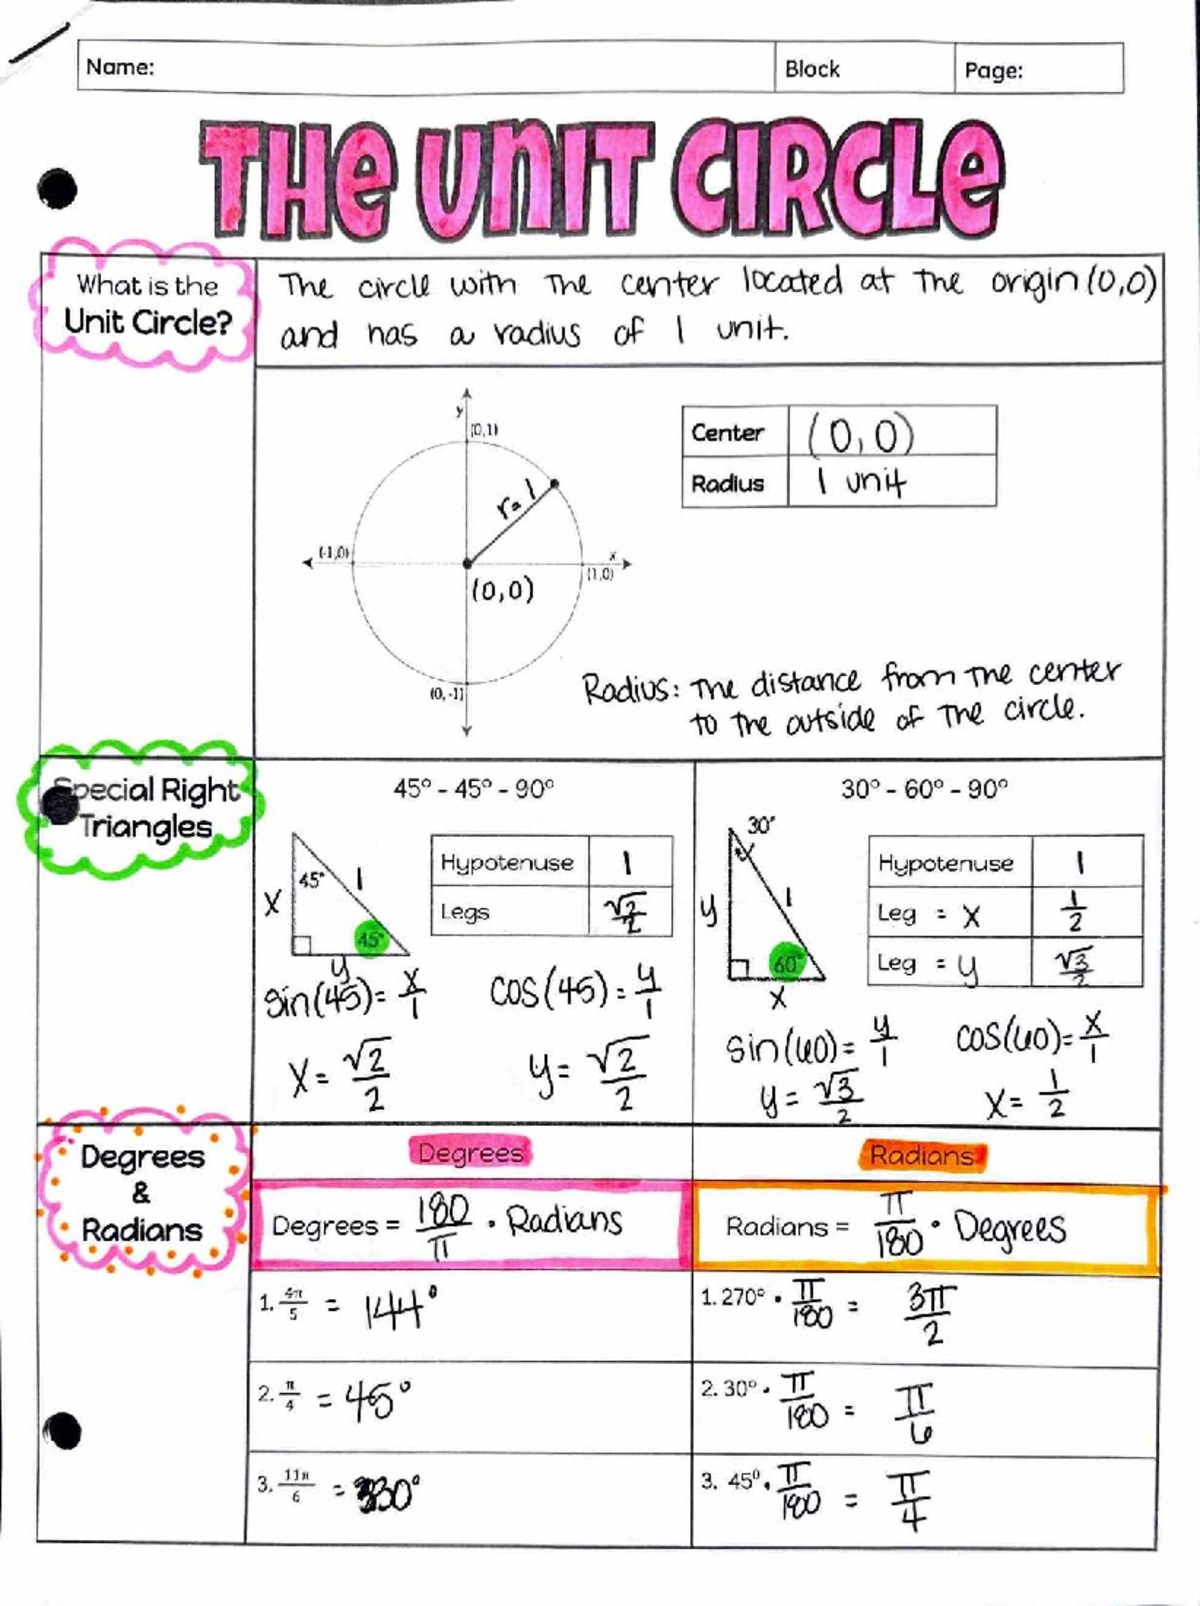 Name:
Block
Page:
THE UNIT CIRCLE
What is the
Unit Circle?
The circle with the center located at the origin (0,0)
and has a radius of 1 unit.
y
(0,1)
r=1
(-1,0)
x
(1,0)
(0,0)
(0,-1)
Center (0,0)
Radius 1 unit
Radius: The distance from the center
to the outside of the circle.
Special Right
Triangles
45° - 45° - 90°
x
45°
1
45°
y
Hypotenuse 1
Legs √2/2
sin(45) = x/1 cos(45) = y/1
x = √2/2 y = √2/2
30° - 60° - 90°
30°
y
1
60°
x
Hypotenuse 1
Leg = x 1/2
Leg = y √3/2
sin(60) = y/1 cos(60) = x/1
y = √3/2 x = 1/2
Degrees
&
Radians
Degrees
Radians
Degrees = 180/π · Radians
Radians = π/180 · Degrees
1. 4π/5 = 144°
1. 270° · π/180 = 3π/2
2. π/4 = 45°
2. 30° · π/180 = π/6
3. 11π/6 = 330°
3. 45° · π/180 = π/4